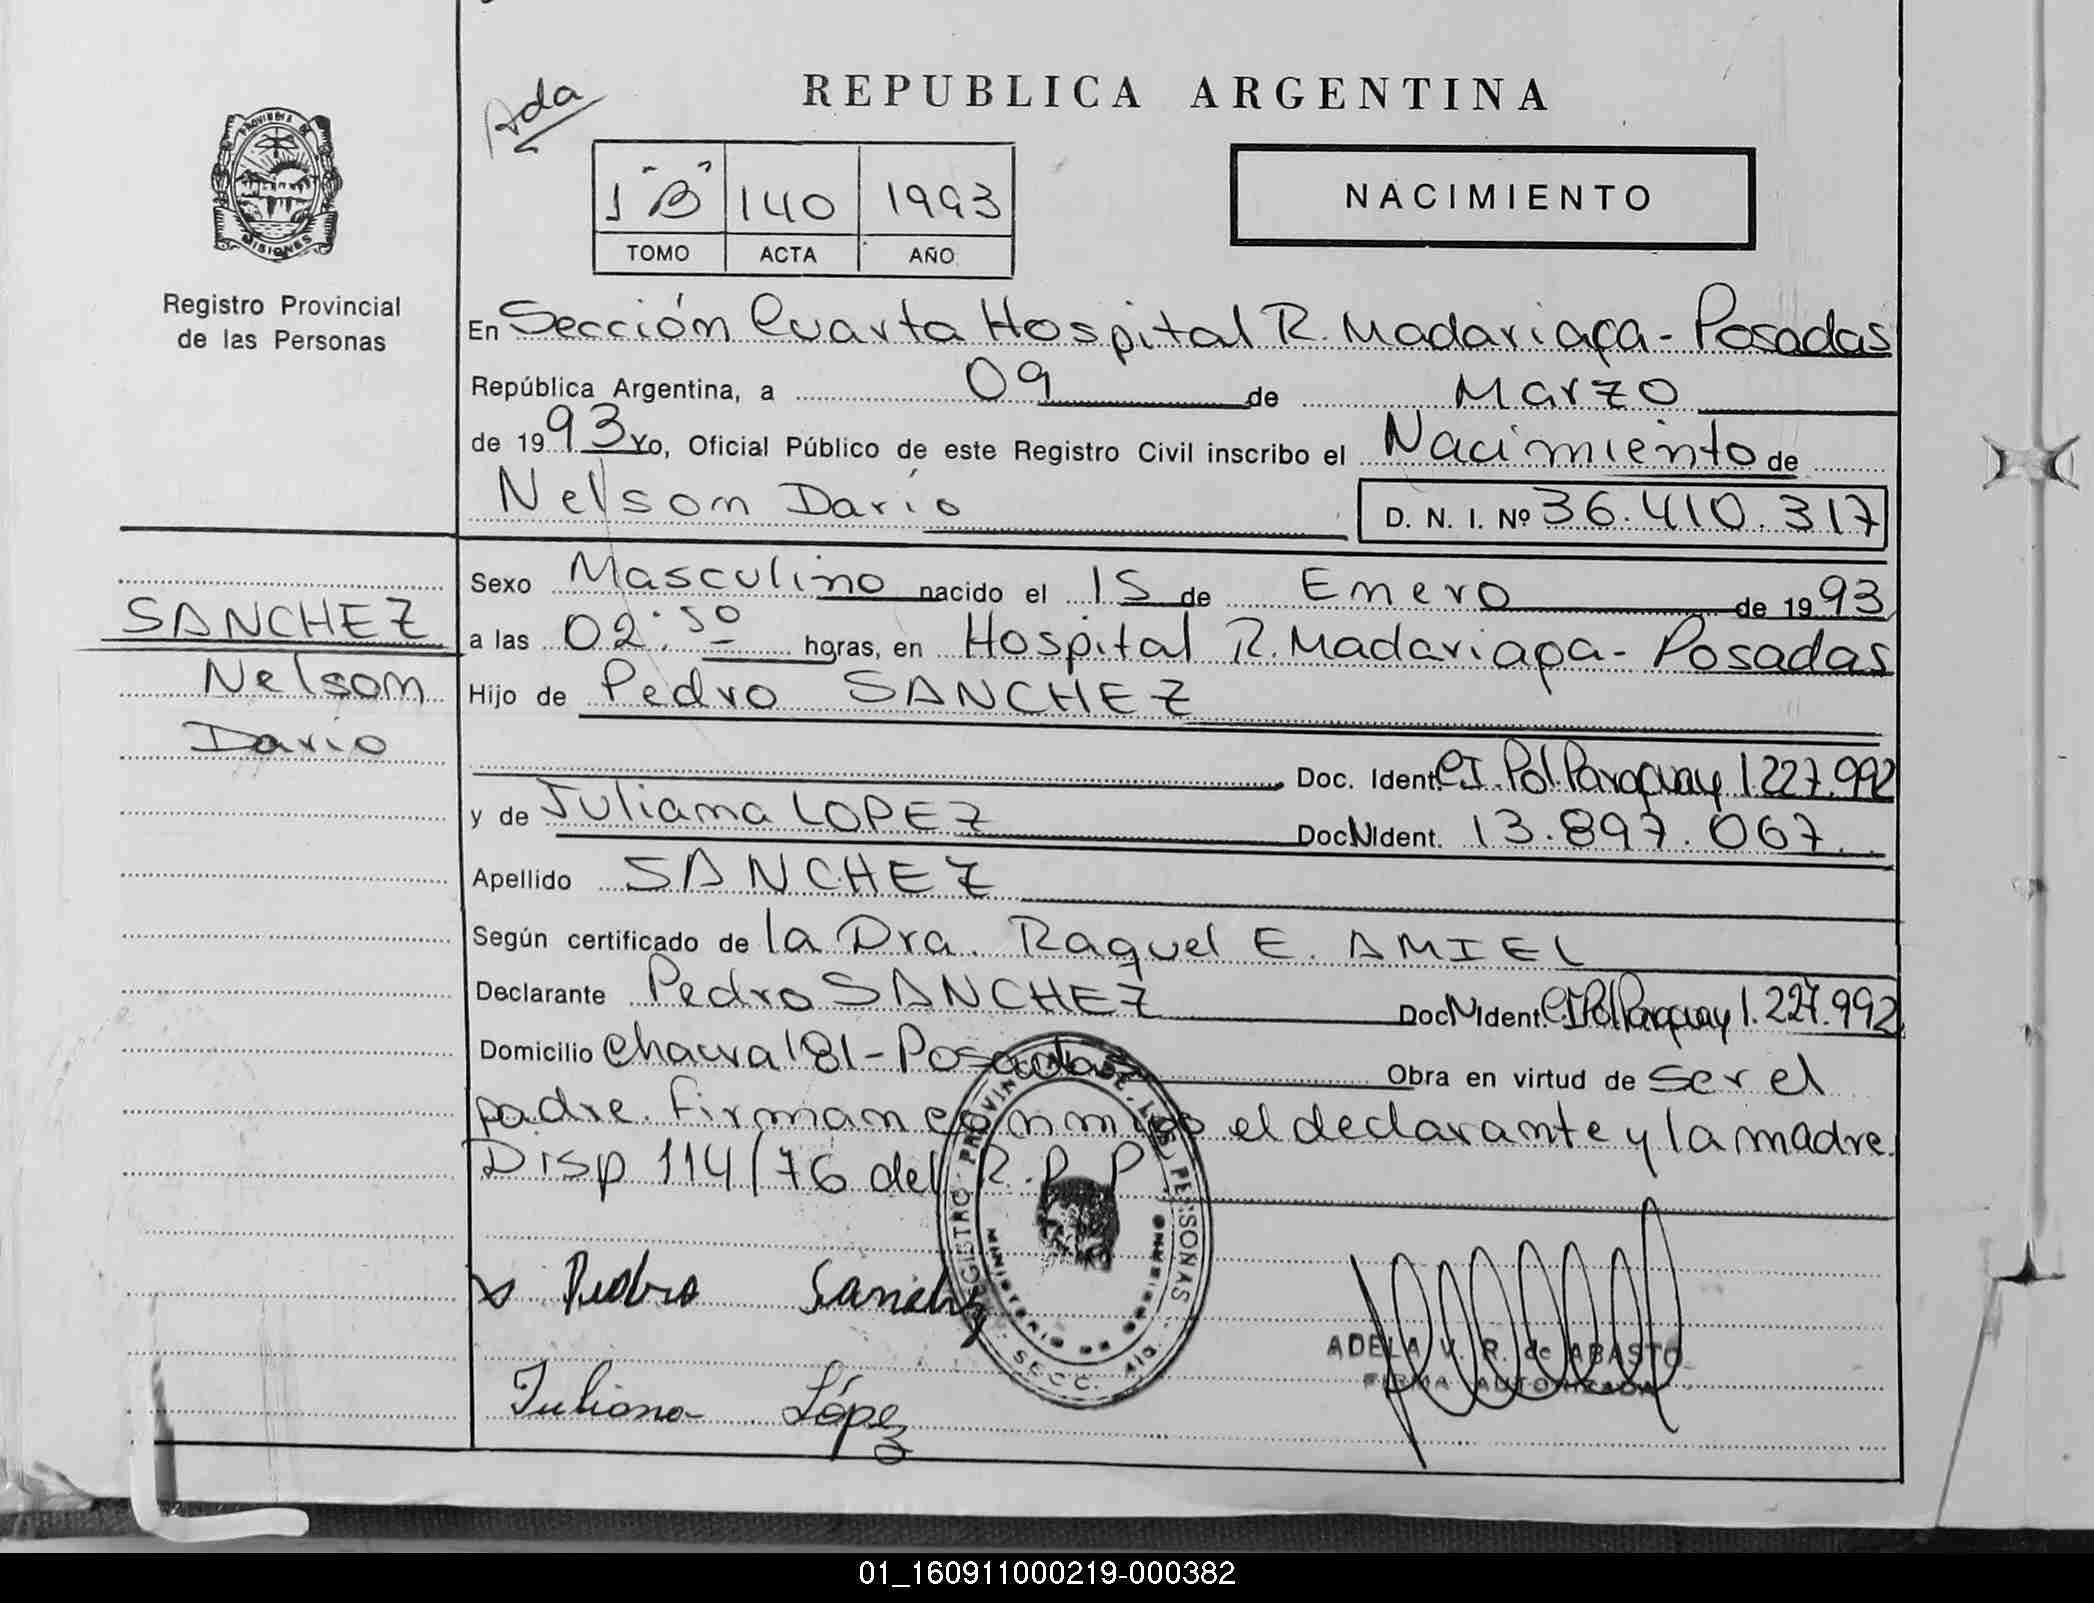 Ada
REPUBLICA ARGENTINA
PROVINCIA DE
MISIONES
1 "B" 140 1993
TOMO ACTA AÑO
NACIMIENTO
Registro Provincial
de las Personas
En Sección Cuarta Hospital R. Madariaga - Posadas
República Argentina, a 09 de Marzo
de 1993 Yo, Oficial Público de este Registro Civil inscribo el Nacimiento de
Nelson Darío D. N. I. Nº 36.410.317
SANCHEZ
Nelson
Dario
Sexo Masculino nacido el 15 de Enero de 1993
a las 02:50 horas, en Hospital R. Madariaga - Posadas
Hijo de Pedro SANCHEZ
Doc. Ident. CI. Pol. Paraguay 1.227.992
y de Juliana LOPEZ DocNIdent. 13.897.067
Apellido SANCHEZ
Según certificado de la Dra. Raquel E. AMIEL
Declarante Pedro SANCHEZ DocNIdent. CI Pol Paraguay 1.227.992
Domicilio Chacra 181 - Posadas Obra en virtud de ser el
padre. Firman conmigo el declarante y la madre.
Disp 114/76 del R.P.P.
REGISTRO PROVINCIAL DE LAS PERSONAS
MINISTERIO DE GOBIERNO
SECC. 4ta.
Pedro Sanchez
ADELA V. R. de ABASTO
FIRMA AUTORIZADA
Juliana López
01_160911000219-000382